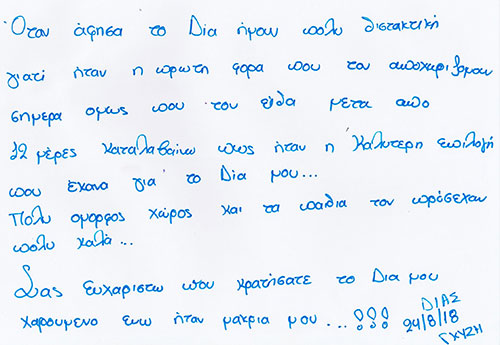 Όταν άφησα το Δία ήμουν πολυ διστακτική
γιατί ήταν η πρωτη φορα που τον αποχωριζομουν
σημερα ομως που τον είδα μετα απο
12 μέρες καταλαβαίνω πως ήταν η καλυτερη επιλογή
που έκανα για το Δία μου...
Πολυ ομορφος χώρος και τα παιδια τον πρόσεχαν
πολυ καλά...
Σας ευχαριστω που κρατήσατε το Δια μου
χαρουμενο ενω ήταν μακρια μου ...!!!
ΔΙΑΣ
24/8/18
ΓΚΥΖΗ